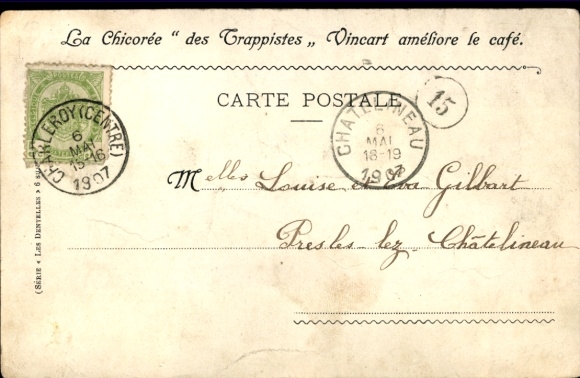 La Chicorée “ des Trappistes „ Vincart améliore le café.
CARTE POSTALE
15
CHARLEROY (CENTRE)
6
MAI
15-16
1907
CHATELINEAU
6
MAI
18-19
1907
Melles Louise et Eva Gilbart
Presles-lez-Châtelineau
(SÉRIE « LES DENTELLES » 6